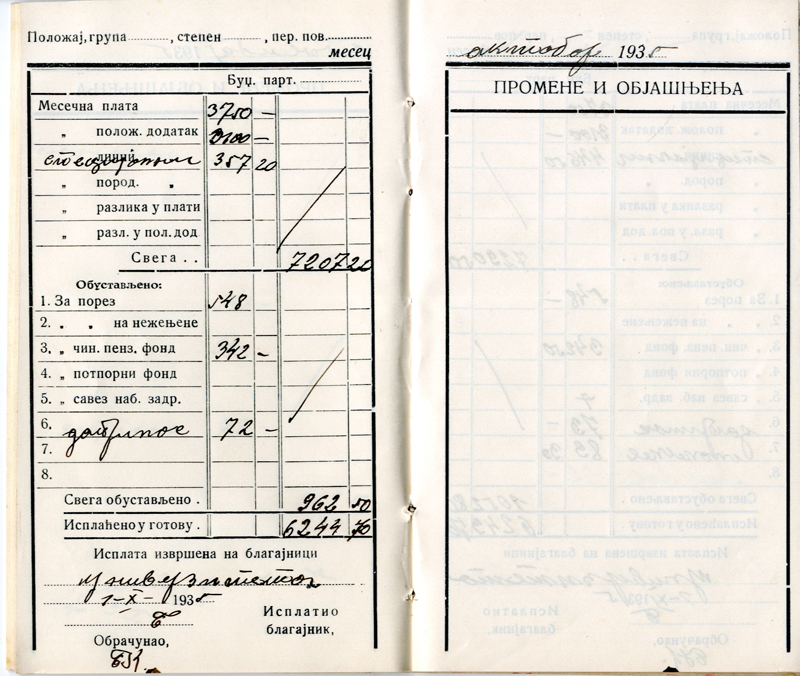 Положај, група , степен , пер. пов.
месец
Буџ. парт.
Месечна плата 3750 —
„ полож. додатак 3100 —
357 20
„ пород. „
„ разлика у плати
„ разл. у пол. дод
Свега . . 7207 20
Обустављено:
1. За порез 548
2. „ „ на нежењене
3. „ чин. пенз. фонд 342 —
4. „ потпорни фонд
5. „ савез наб. задр.
6. 72 —
7.
8.
Свега обустављено . 962 50
Исплаћено у готову . 6244 70
Исплата извршена на благајници
1-X- 1935
Исплатио
благајник,
Обрачунао,
октобар 1935
ПРОМЕНЕ И ОБЈАШЊЕЊА